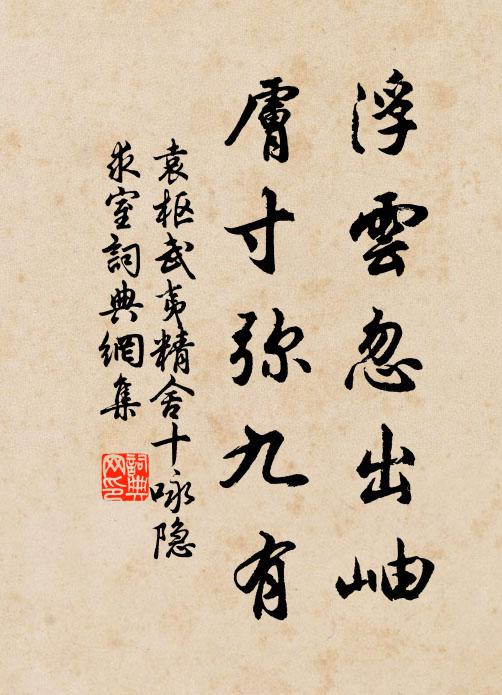 浮雲忽出岫
膚寸弥九有
袁枢武夷精舍十咏隐
求室詞典網集
詞典
网印